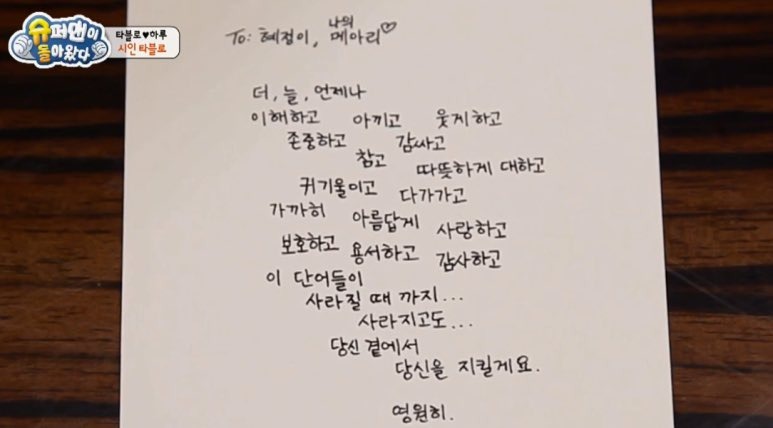 슈퍼맨이
돌아왔다
타블로♥하루
시인 타블로
나의
To: 혜정이, 메아리♡
더, 늘, 언제나
이해하고 아끼고 웃게하고
존중하고 감싸고
참고 따뜻하게 대하고
귀기울이고 다가가고
가까히 아름답게 사랑하고
보호하고 용서하고 감사하고
이 단어들이
사라질 때 까지...
사라지고도...
당신 곁에서
당신을 지킬게요.
영원히.